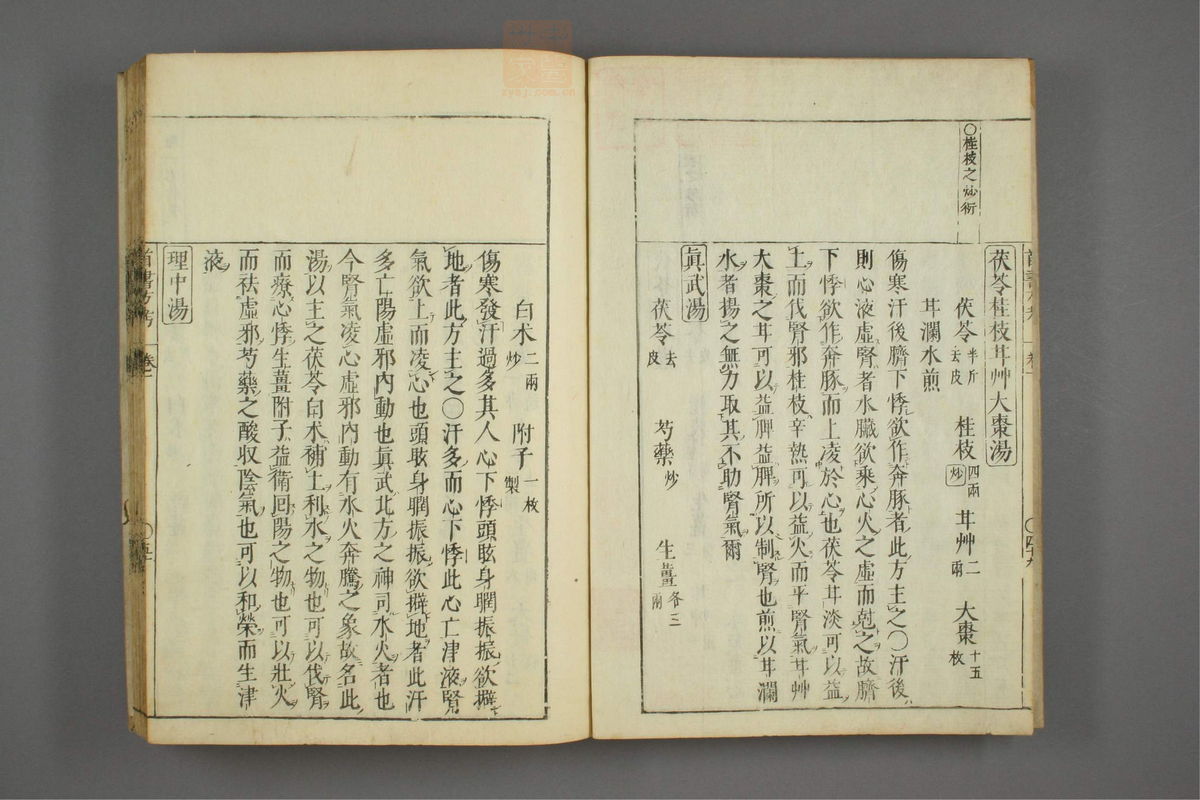 ○桂枝之炒衍
茯苓桂枝甘艸大棗湯
茯苓半斤去皮 桂枝四兩炒 甘艸二兩 大棗十五枚
甘瀾水煎
傷寒汗後臍下悸欲作奔豚者此方主之○汗後
則心液虛腎者水臟欲乘心火之虛而尅之故臍
下悸欲作奔豚而上凌於心也茯苓甘淡可以益
土而伐腎邪桂枝辛熱可以益火而平腎氣甘艸
大棗之甘可以益脾益脾所以制腎也煎以甘瀾
水者揚之無力取其不助腎氣爾
眞武湯
茯苓去皮 芍藥炒 生薑各三兩
白朮二兩炒 附子一枚製
傷寒發汗過多其人心下悸頭眩身瞤振振欲擗
地者此方主之○汗多而心下悸此心亡津液腎
氣欲上而凌心也頭眩身瞤振振欲擗地者此汗
多亡陽虛邪內動也眞武北方之神司水火者也
今腎氣凌心虛邪內動有水火奔騰之象故名此
湯以主之茯苓白朮補土利水之物也可以伐腎
而療心悸生薑附子益衛回陽之物也可以壯火
而袪虛邪芍藥之酸収陰氣也可以和榮而生津
液
理中湯